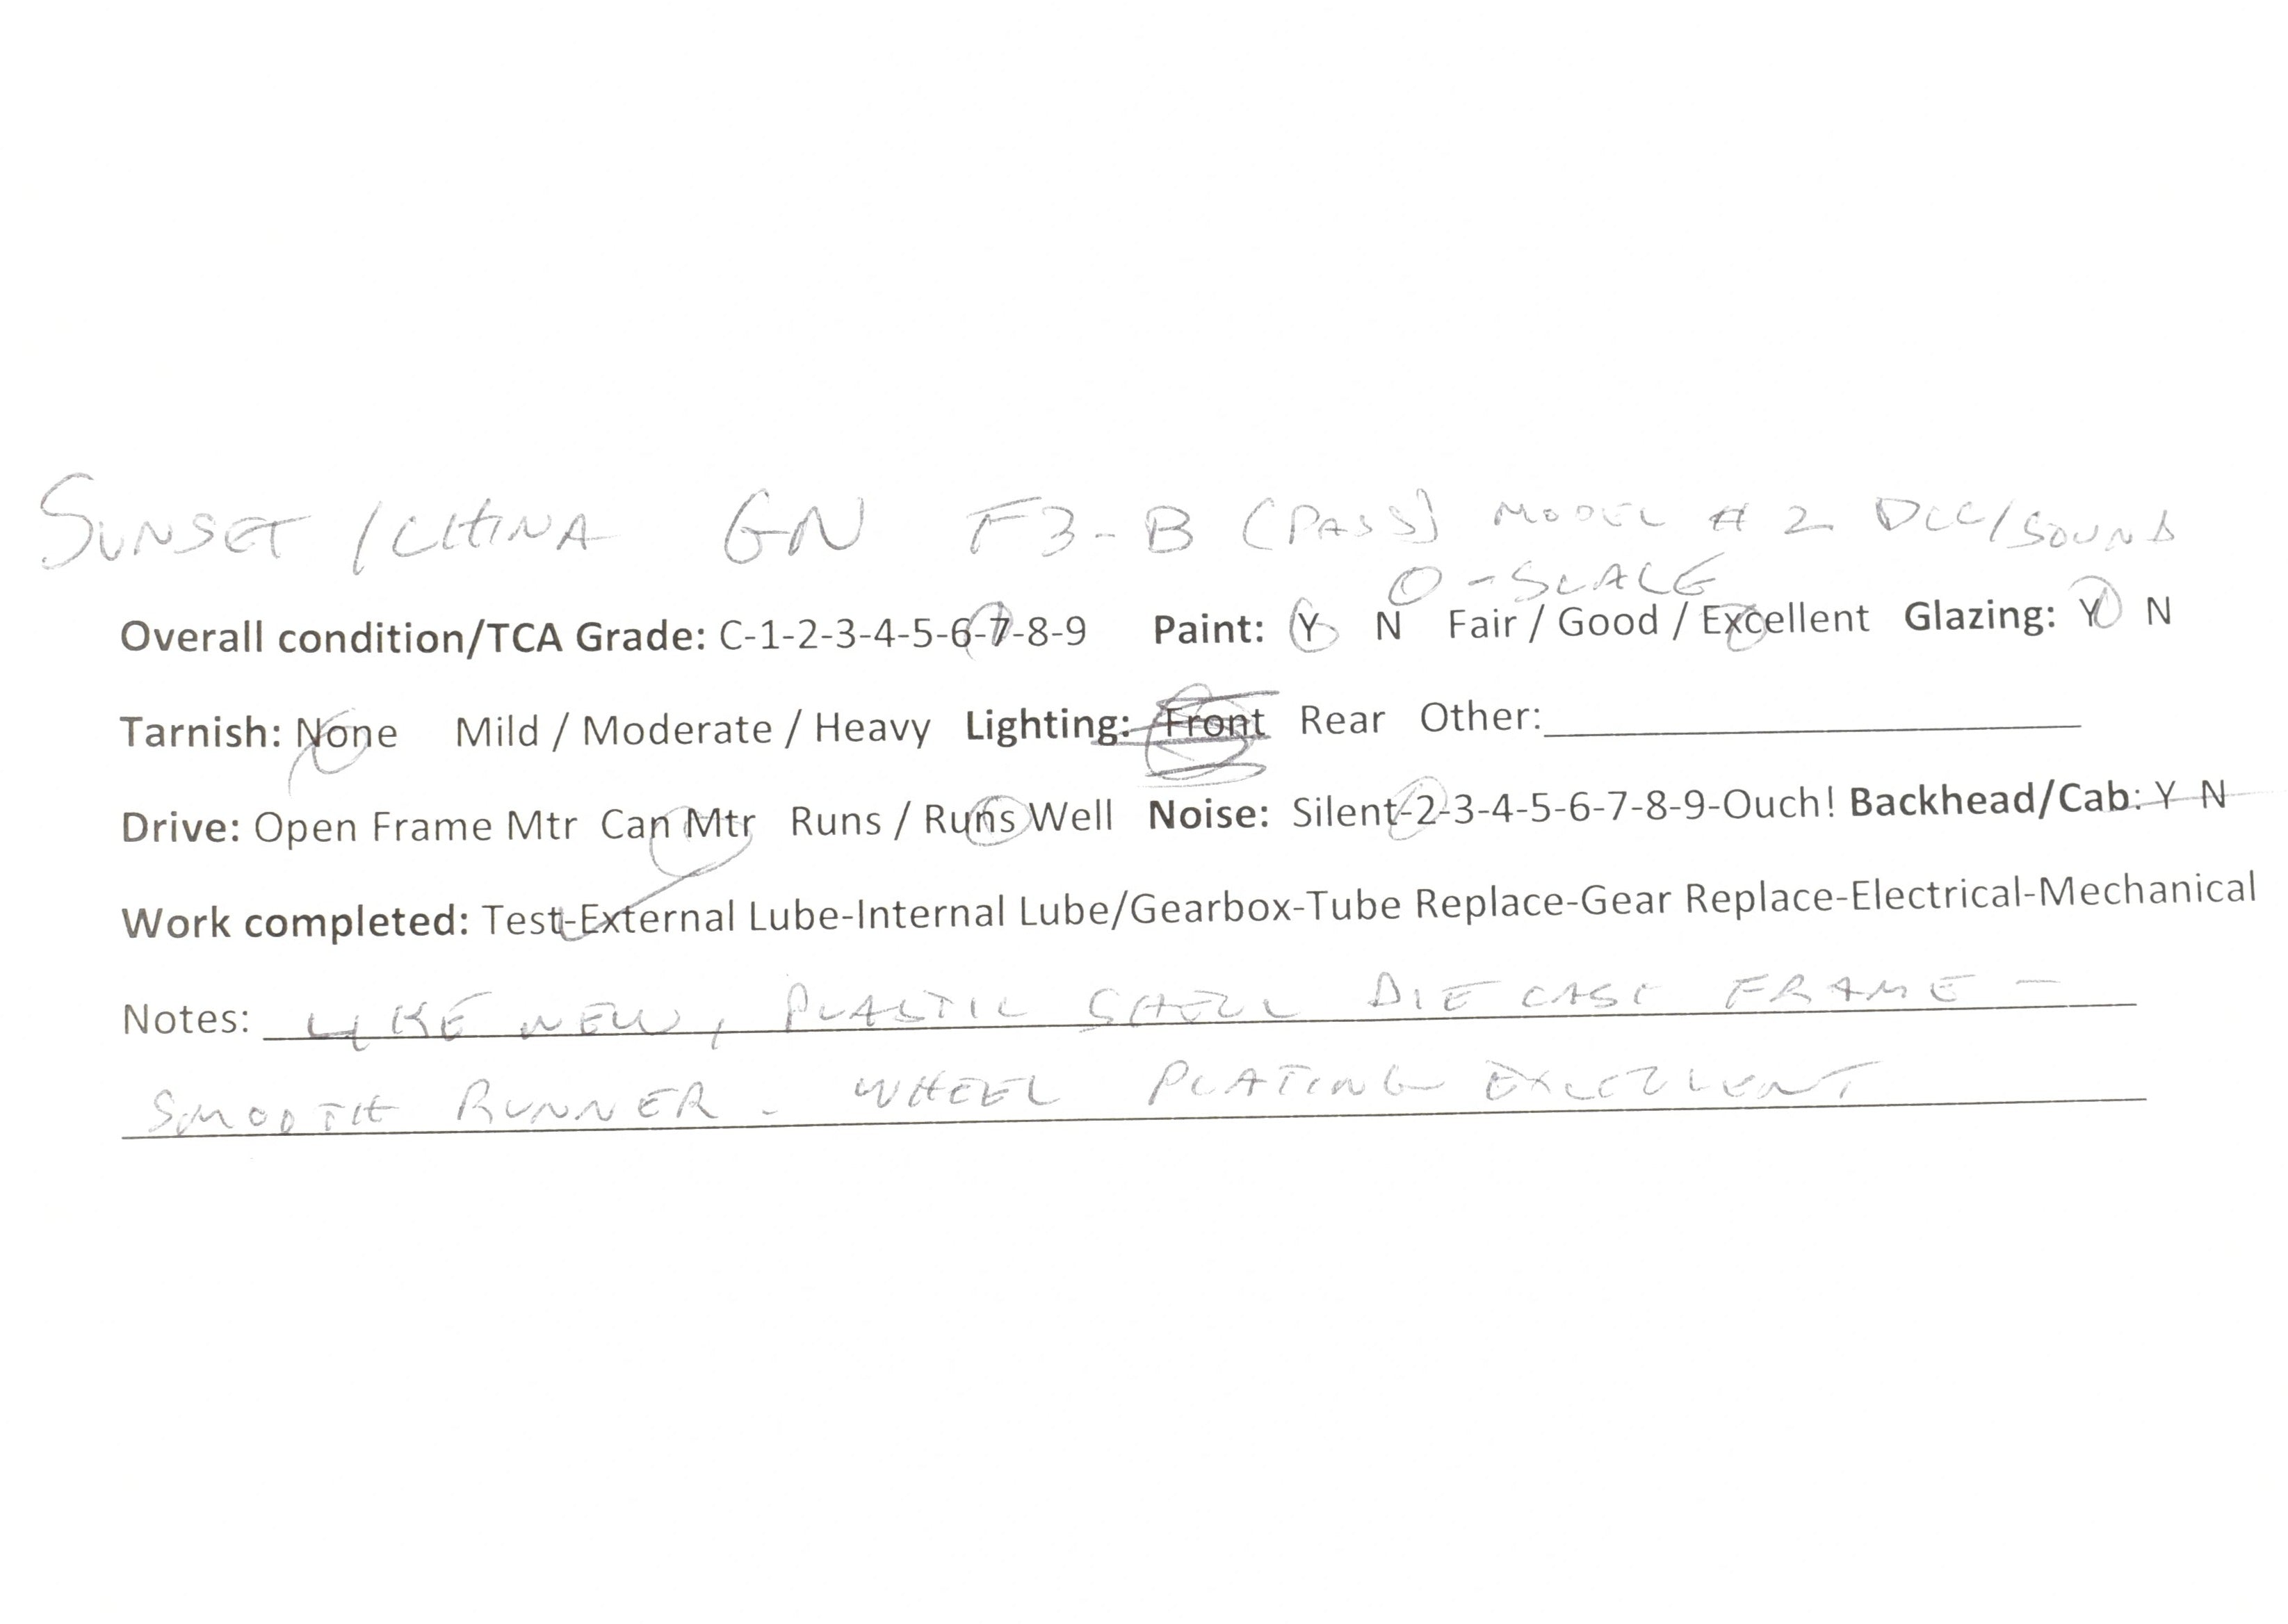 SUNSET / CHINA GN F3-B (PASS) MODEL # 2 DCC/SOUND
O-SCALE
Overall condition/TCA Grade: C-1-2-3-4-5-6-7-8-9 Paint: Y N Fair / Good / Excellent Glazing: Y N
Tarnish: None Mild / Moderate / Heavy Lighting: Front Rear Other:
Drive: Open Frame Mtr Can Mtr Runs / Runs Well Noise: Silent-2-3-4-5-6-7-8-9-Ouch! Backhead/Cab: Y N
Work completed: Test-External Lube-Internal Lube/Gearbox-Tube Replace-Gear Replace-Electrical-Mechanical
Notes: LIKE NEW, PLASTIC SHELL DIE CAST FRAME -
SMOOTH RUNNER - WHEEL PLATING EXCELLENT